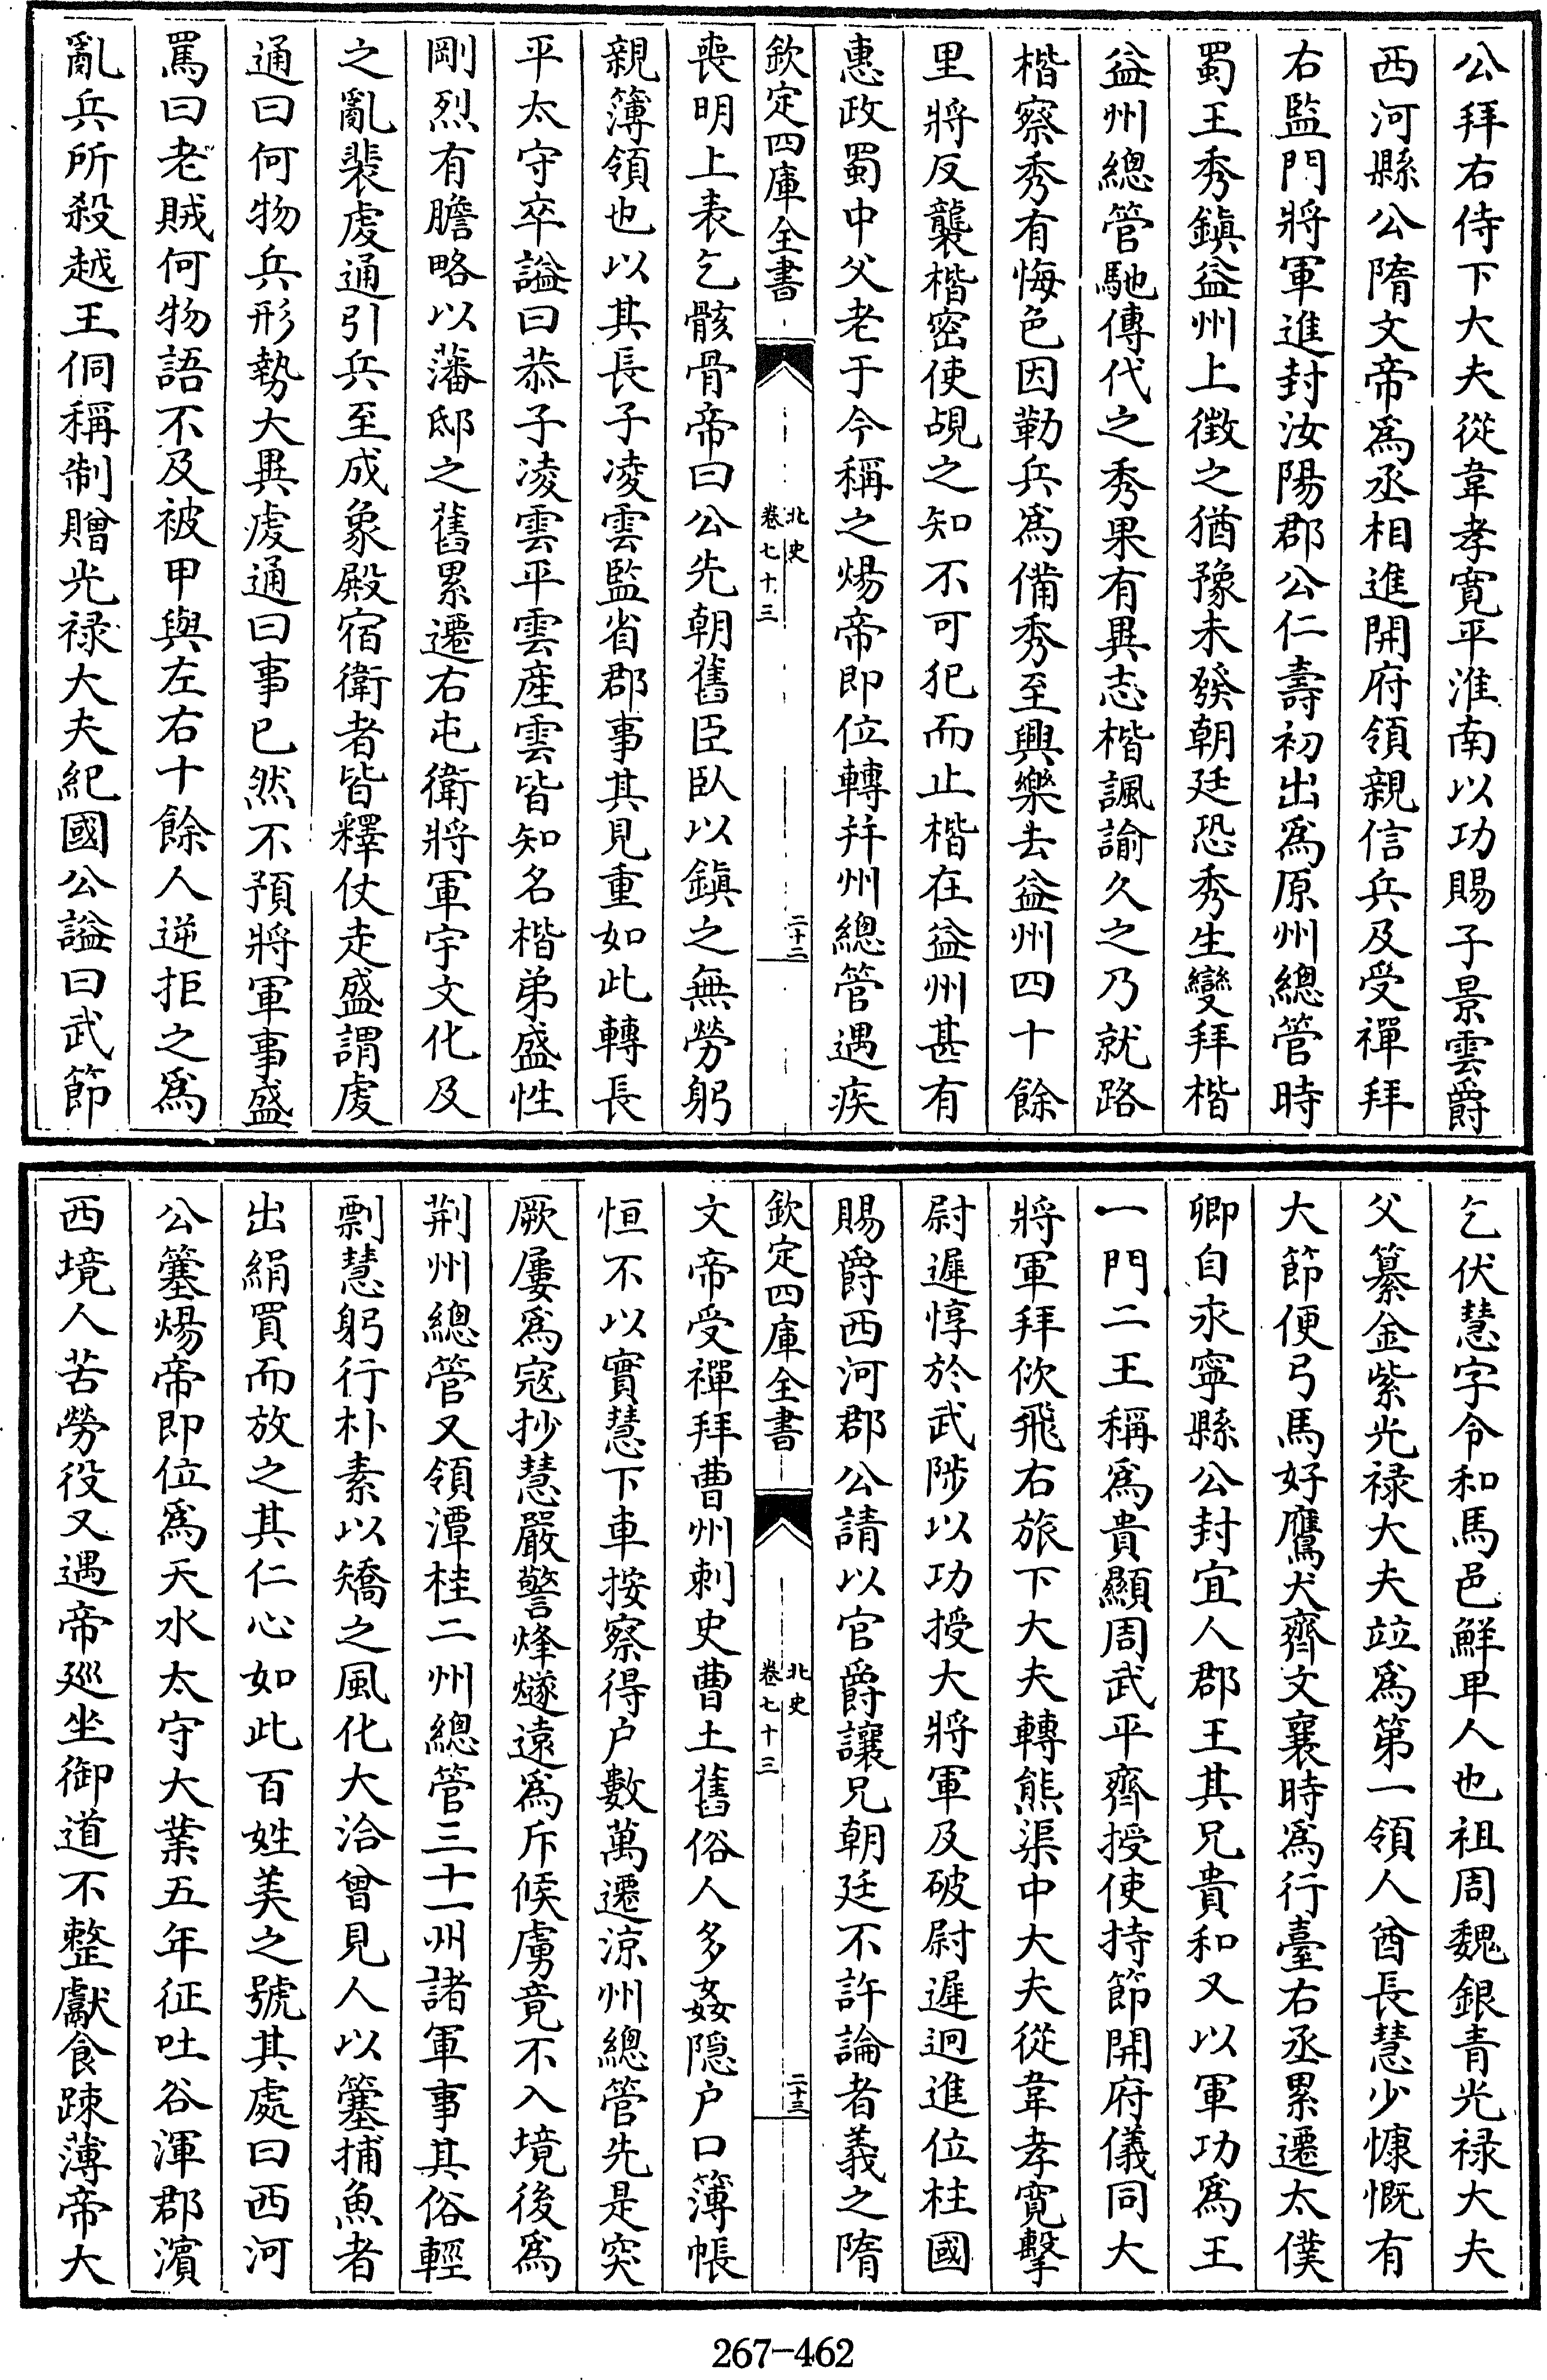 公拜右侍下大夫從韋孝寛平淮南以功賜子景雲爵
西河縣公隋文帝爲丞相進開府領親信兵及受禪拜
右監門將軍進封汝陽郡公仁壽初出爲原州總管時
蜀王秀鎭益州上徴之猶豫未發朝廷恐秀生變拜楷
益州總管馳傳代之秀果有異志楷諷諭久之乃就路
楷察秀有悔色因勒兵爲備秀至興樂去益州四十餘
里將反襲楷密使覘之知不可犯而止楷在益州甚有
惠政蜀中父老于今稱之煬帝即位轉并州總管遇疾
欽定四庫全書
北史
卷七十三
二十二
喪明上表乞骸骨帝曰公先朝舊臣臥以鎭之無勞躬
親簿領也以其長子凌雲監省郡事其見重如此轉長
平太守卒謚曰恭子凌雲平雲産雲皆知名楷弟盛性
剛烈有膽略以藩邸之舊累遷右屯衛將軍宇文化及
之亂裴虔通引兵至成象殿宿衛者皆釋仗走盛謂虔
通曰何物兵形勢大異虔通曰事已然不預將軍事盛
罵曰老賊何物語不及被甲與左右十餘人逆拒之爲
亂兵所殺越王侗稱制贈光禄大夫紀國公謚曰武節
乞伏慧字令和馬邑鮮卑人也祖周魏銀青光禄大夫
父纂金紫光禄大夫竝爲第一領人酋長慧少慷慨有
大節便弓馬好鷹犬齊文襄時爲行臺右丞累遷太僕
卿自永寧縣公封宜人郡王其兄貴和又以軍功爲王
一門二王稱爲貴顯周武平齊授使持節開府儀同大
將軍拜佽飛右旅下大夫轉熊渠中大夫從韋孝寛擊
尉遲惇於武陟以功授大將軍及破尉遲迥進位柱國
賜爵西河郡公請以官爵讓兄朝廷不許論者義之隋
欽定四庫全書
北史
卷七十三
二十三
文帝受禪拜曹州刺史曹土舊俗人多姦隠户口簿帳
恒不以實慧下車按察得户數萬遷涼州總管先是突
厥屢爲寇抄慧嚴警烽燧遠爲斥候虜竟不入境後爲
荆州總管又領潭桂二州總管三十一州諸軍事其俗輕
剽慧躬行朴素以矯之風化大洽曾見人以簺捕魚者
出絹買而放之其仁心如此百姓美之號其處曰西河
公簺煬帝即位爲天水太守大業五年征吐谷渾郡濵
西境人苦勞役又遇帝廵坐御道不整獻食踈薄帝大
267-462